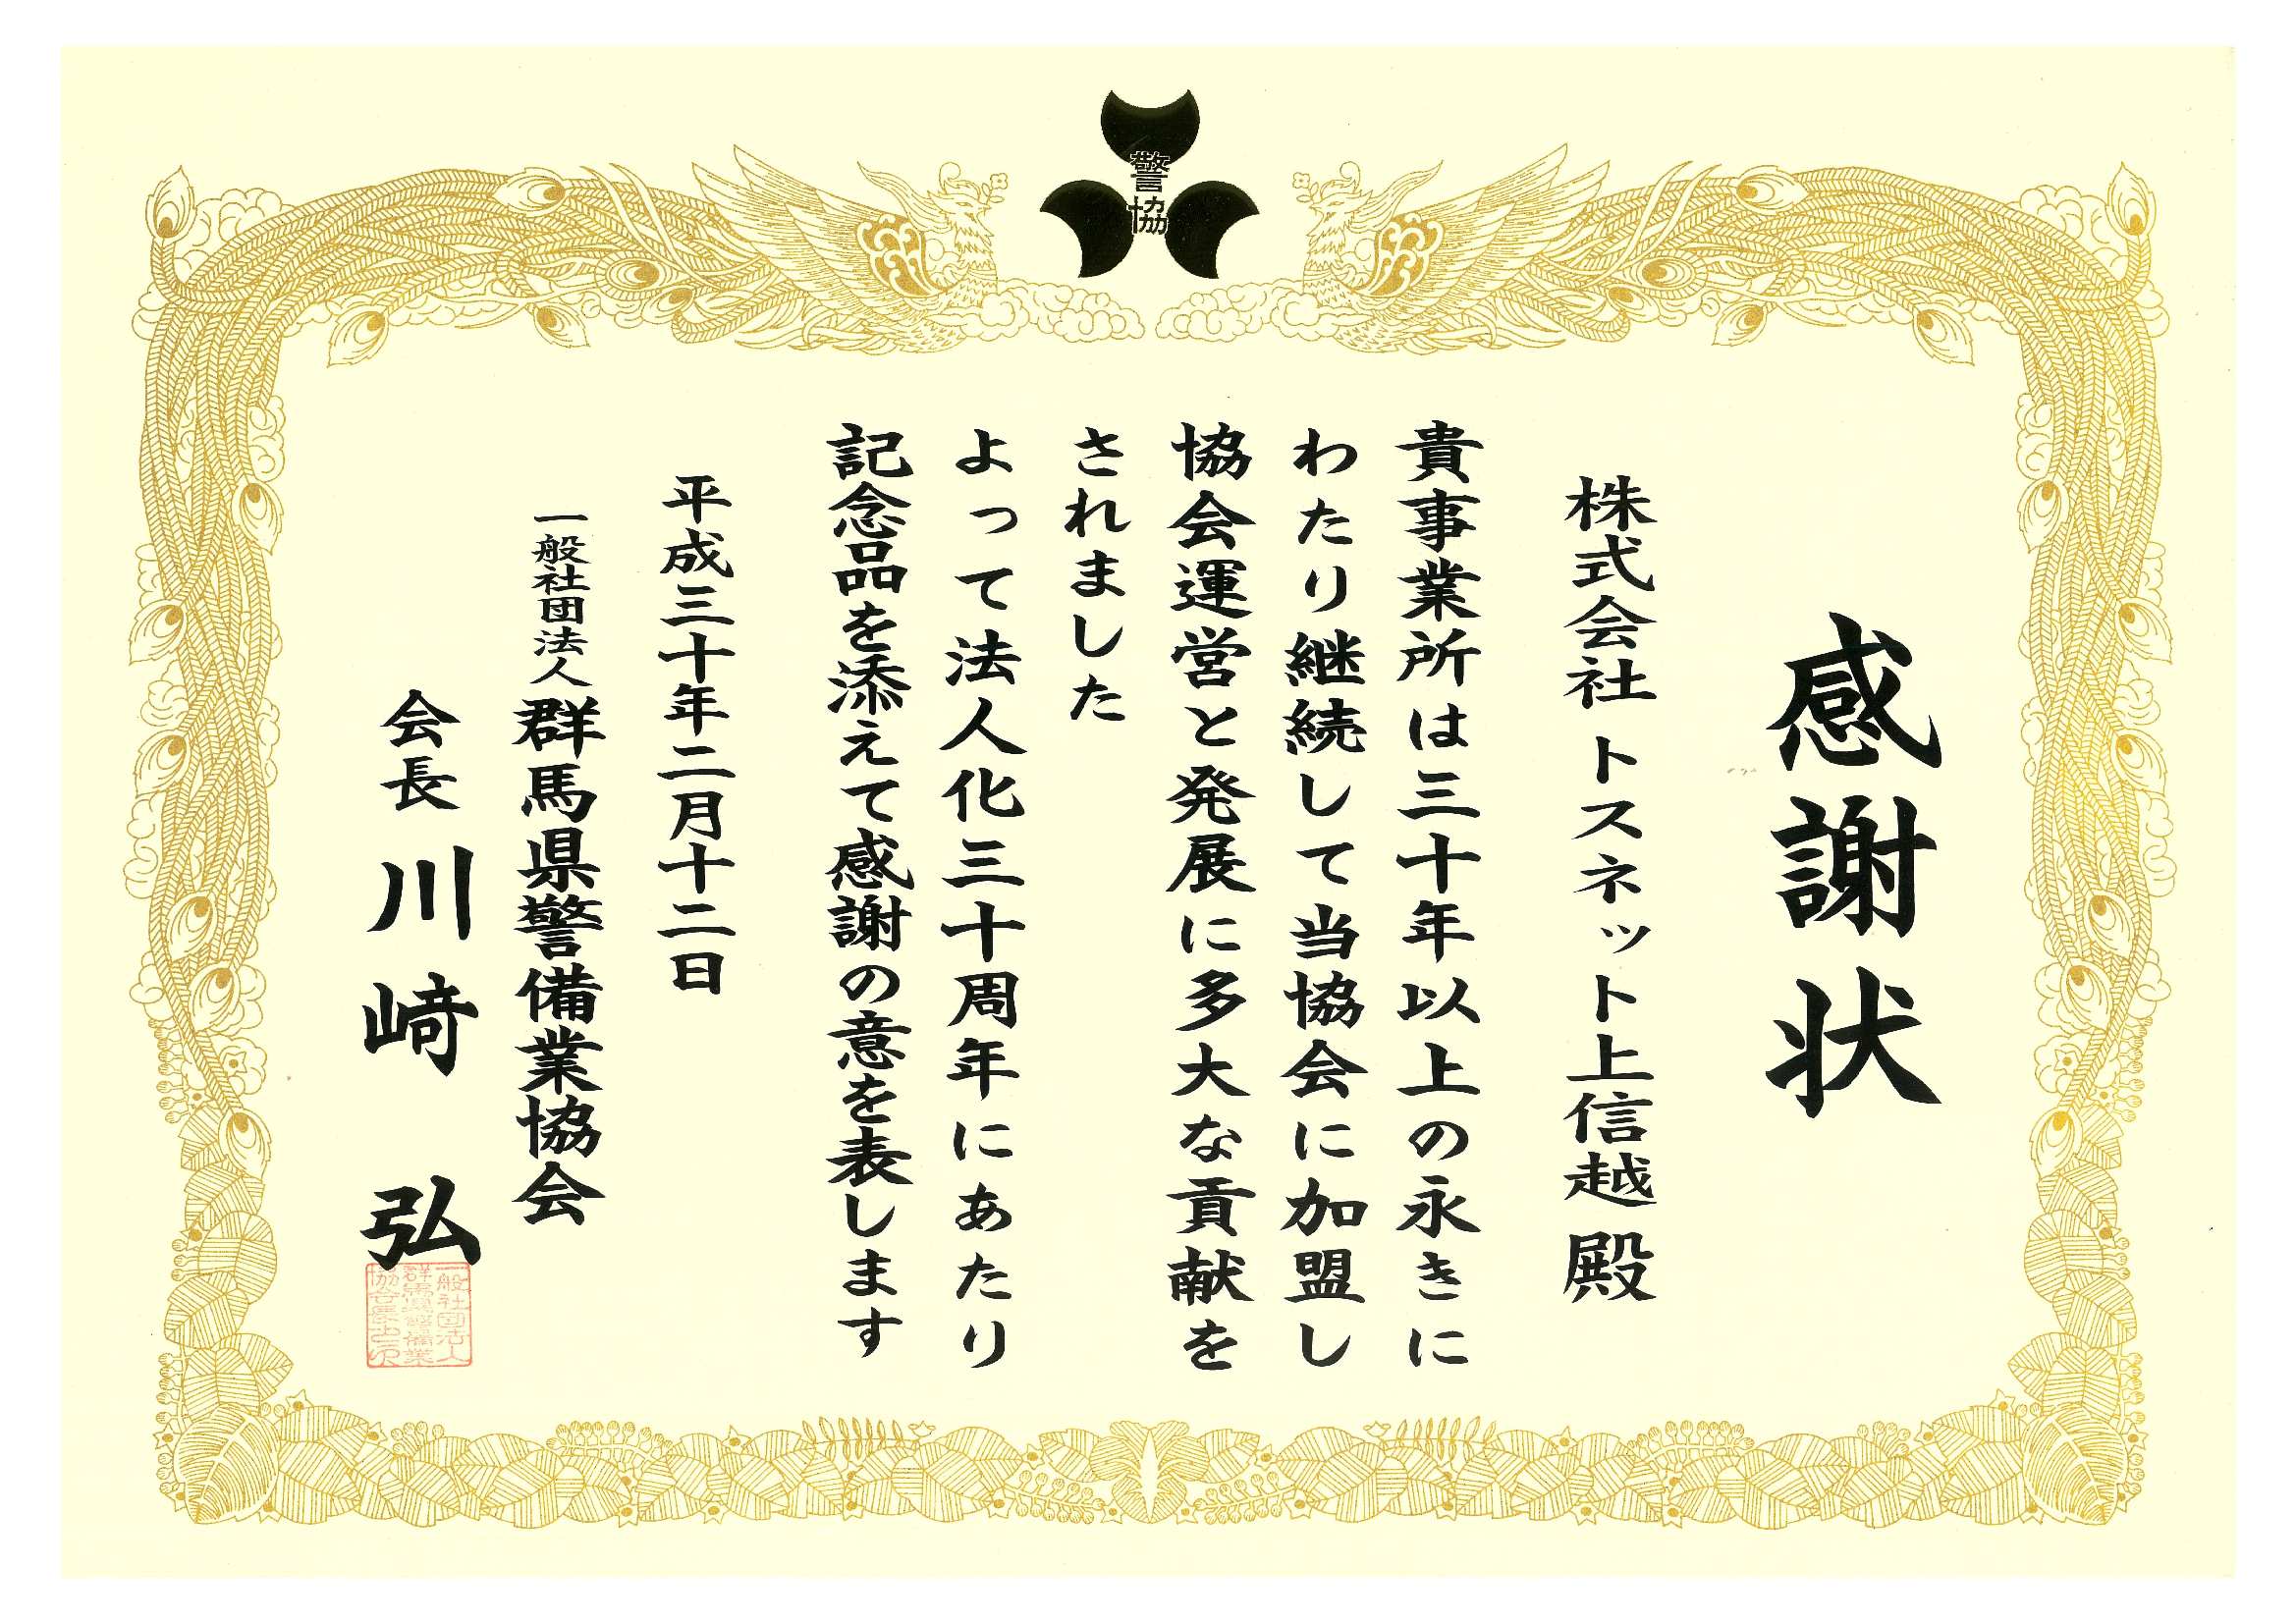 警
協
感謝状
株式会社トスネット上信越殿
貴事業所は三十年以上の永きに
わたり継続して当協会に加盟し
協会運営と発展に多大な貢献を
されました
よって法人化三十周年にあたり
記念品を添えて感謝の意を表します
平成三十年二月十二日
一般社団法人群馬県警備業協会
会長川﨑弘
一般社団法人
群馬県警備業
協会長之印